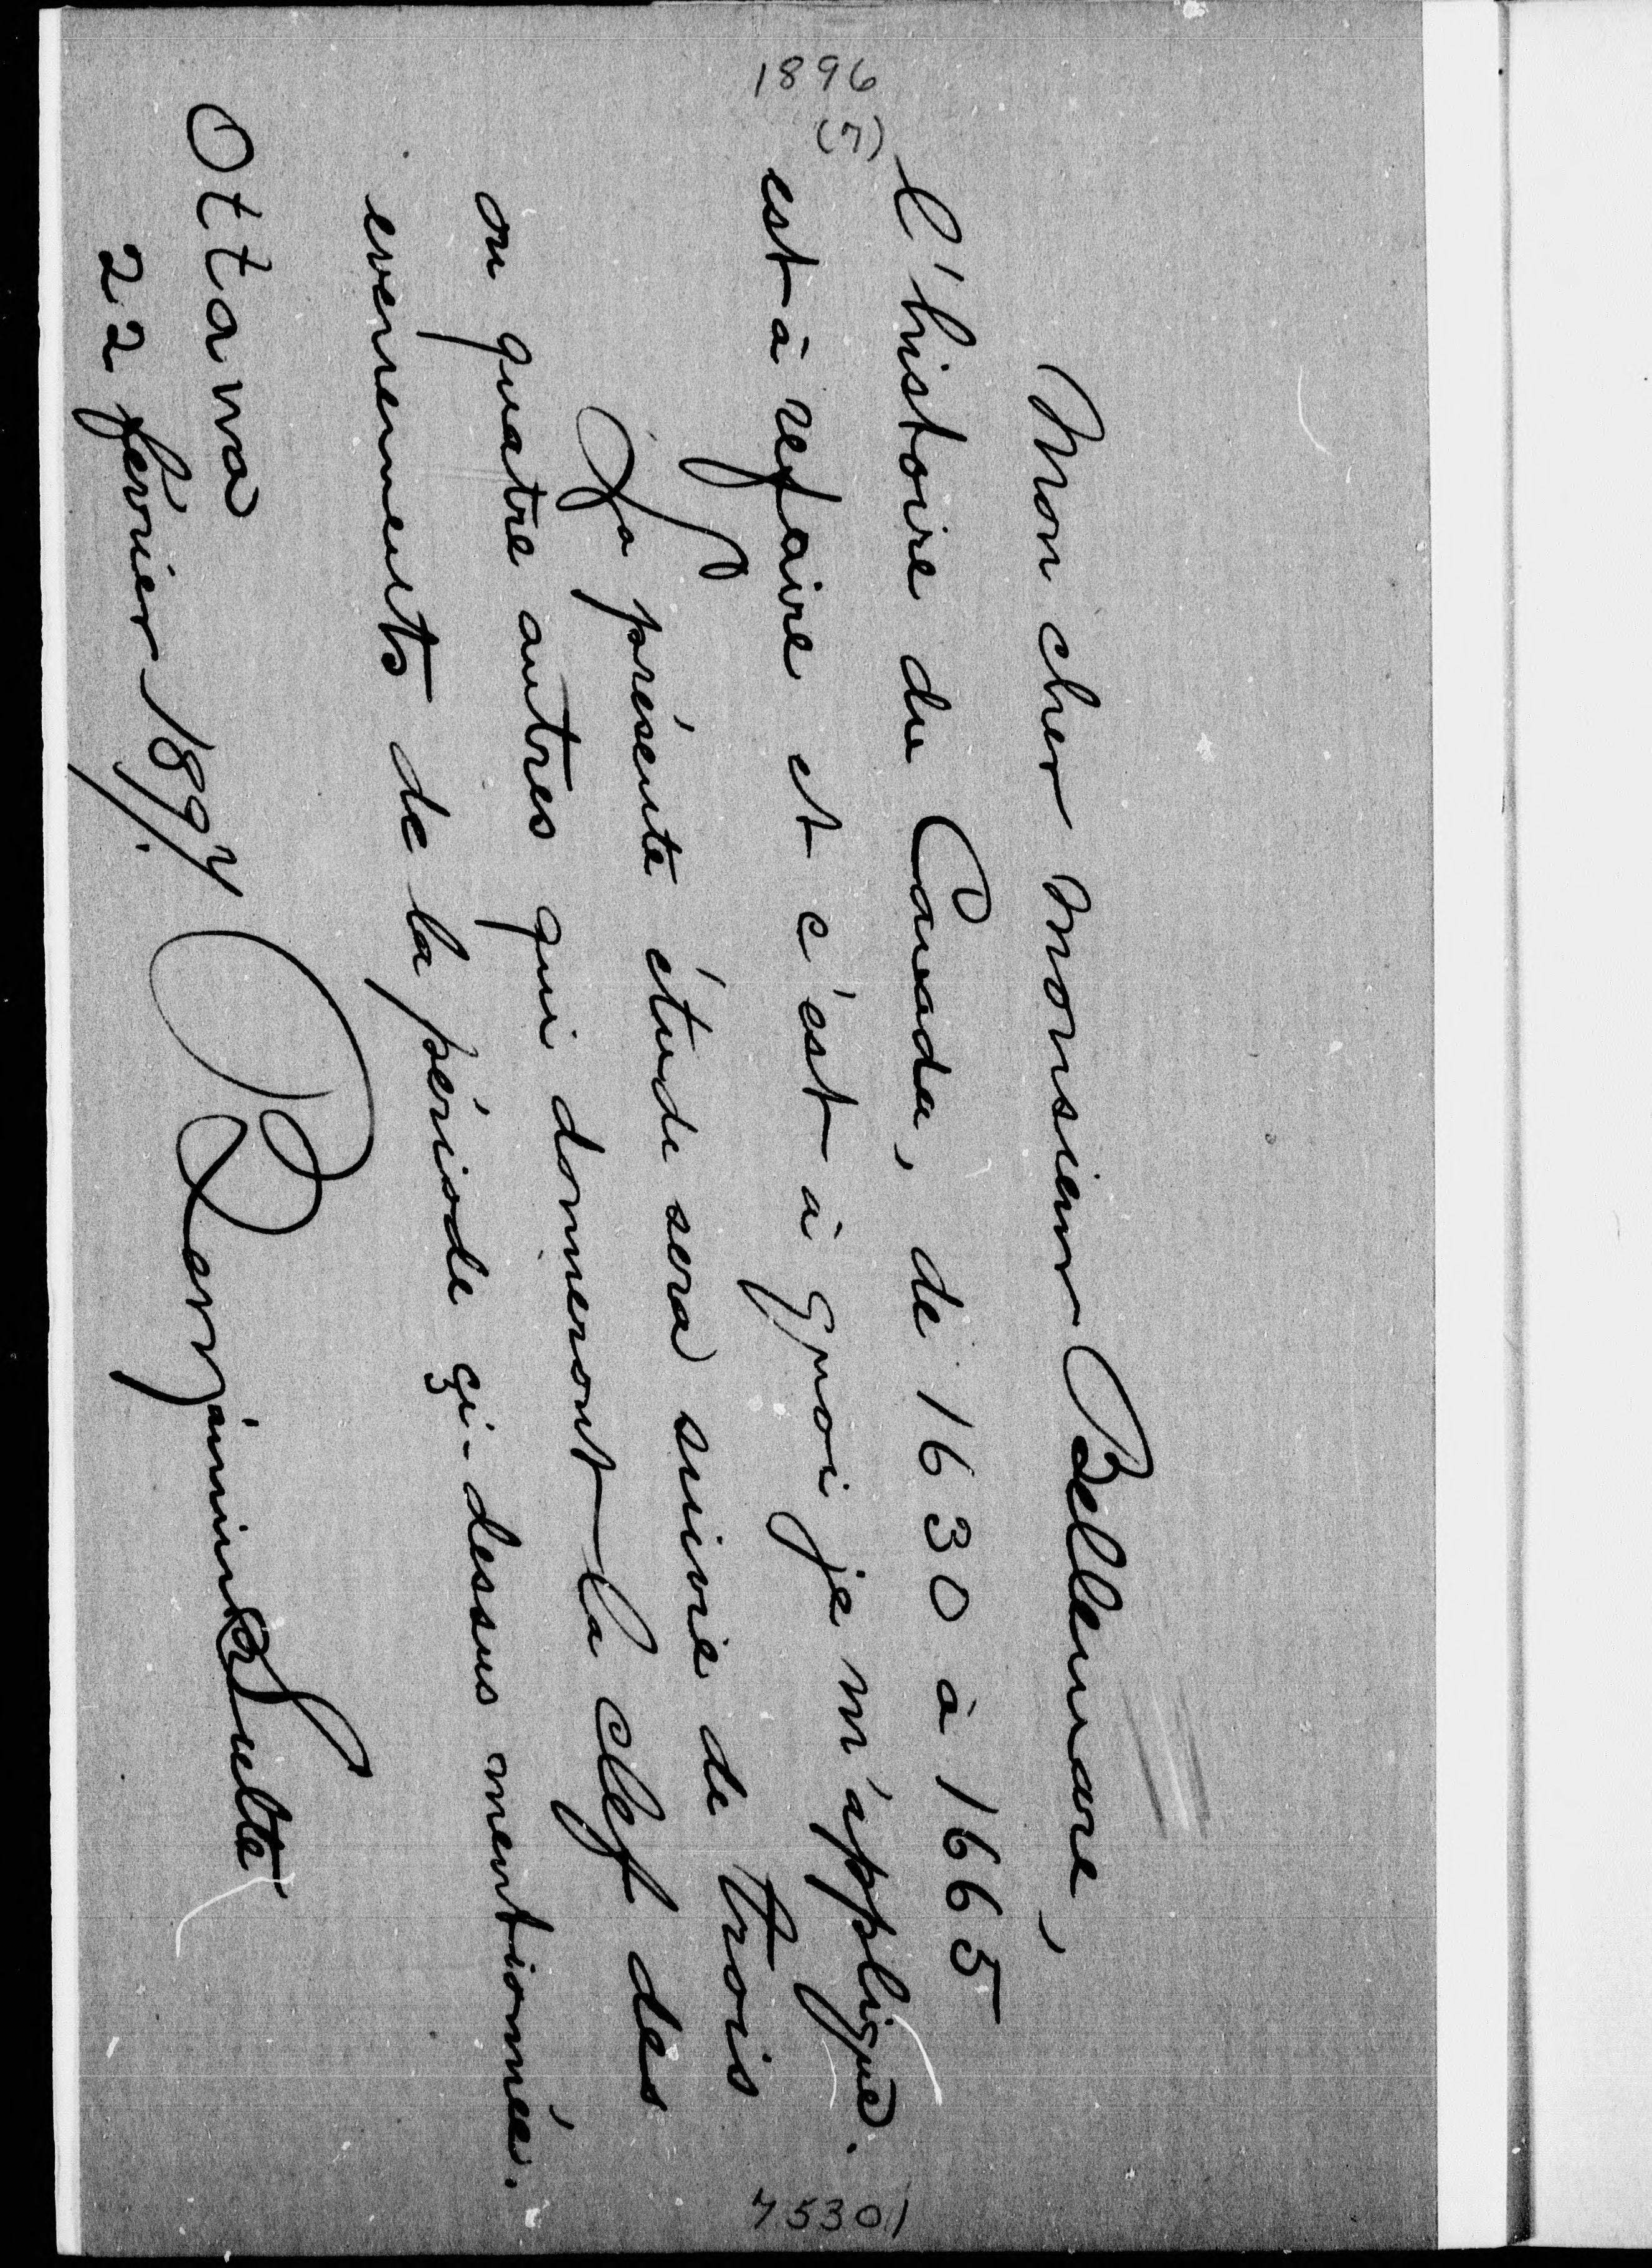 Mon cher monsieur Bellemare,
l'histoire du Canada, de 1630 à 1665
est à refaire et c'est à quoi je m'applique.
La présente étude sera suivie de trois
ou quatre autres qui donneront la clef des
evenements de la période çi-dessus mentionnée.
Ottawa
22 février 1897.
Benjamin Sulte
1896
(7)
75301